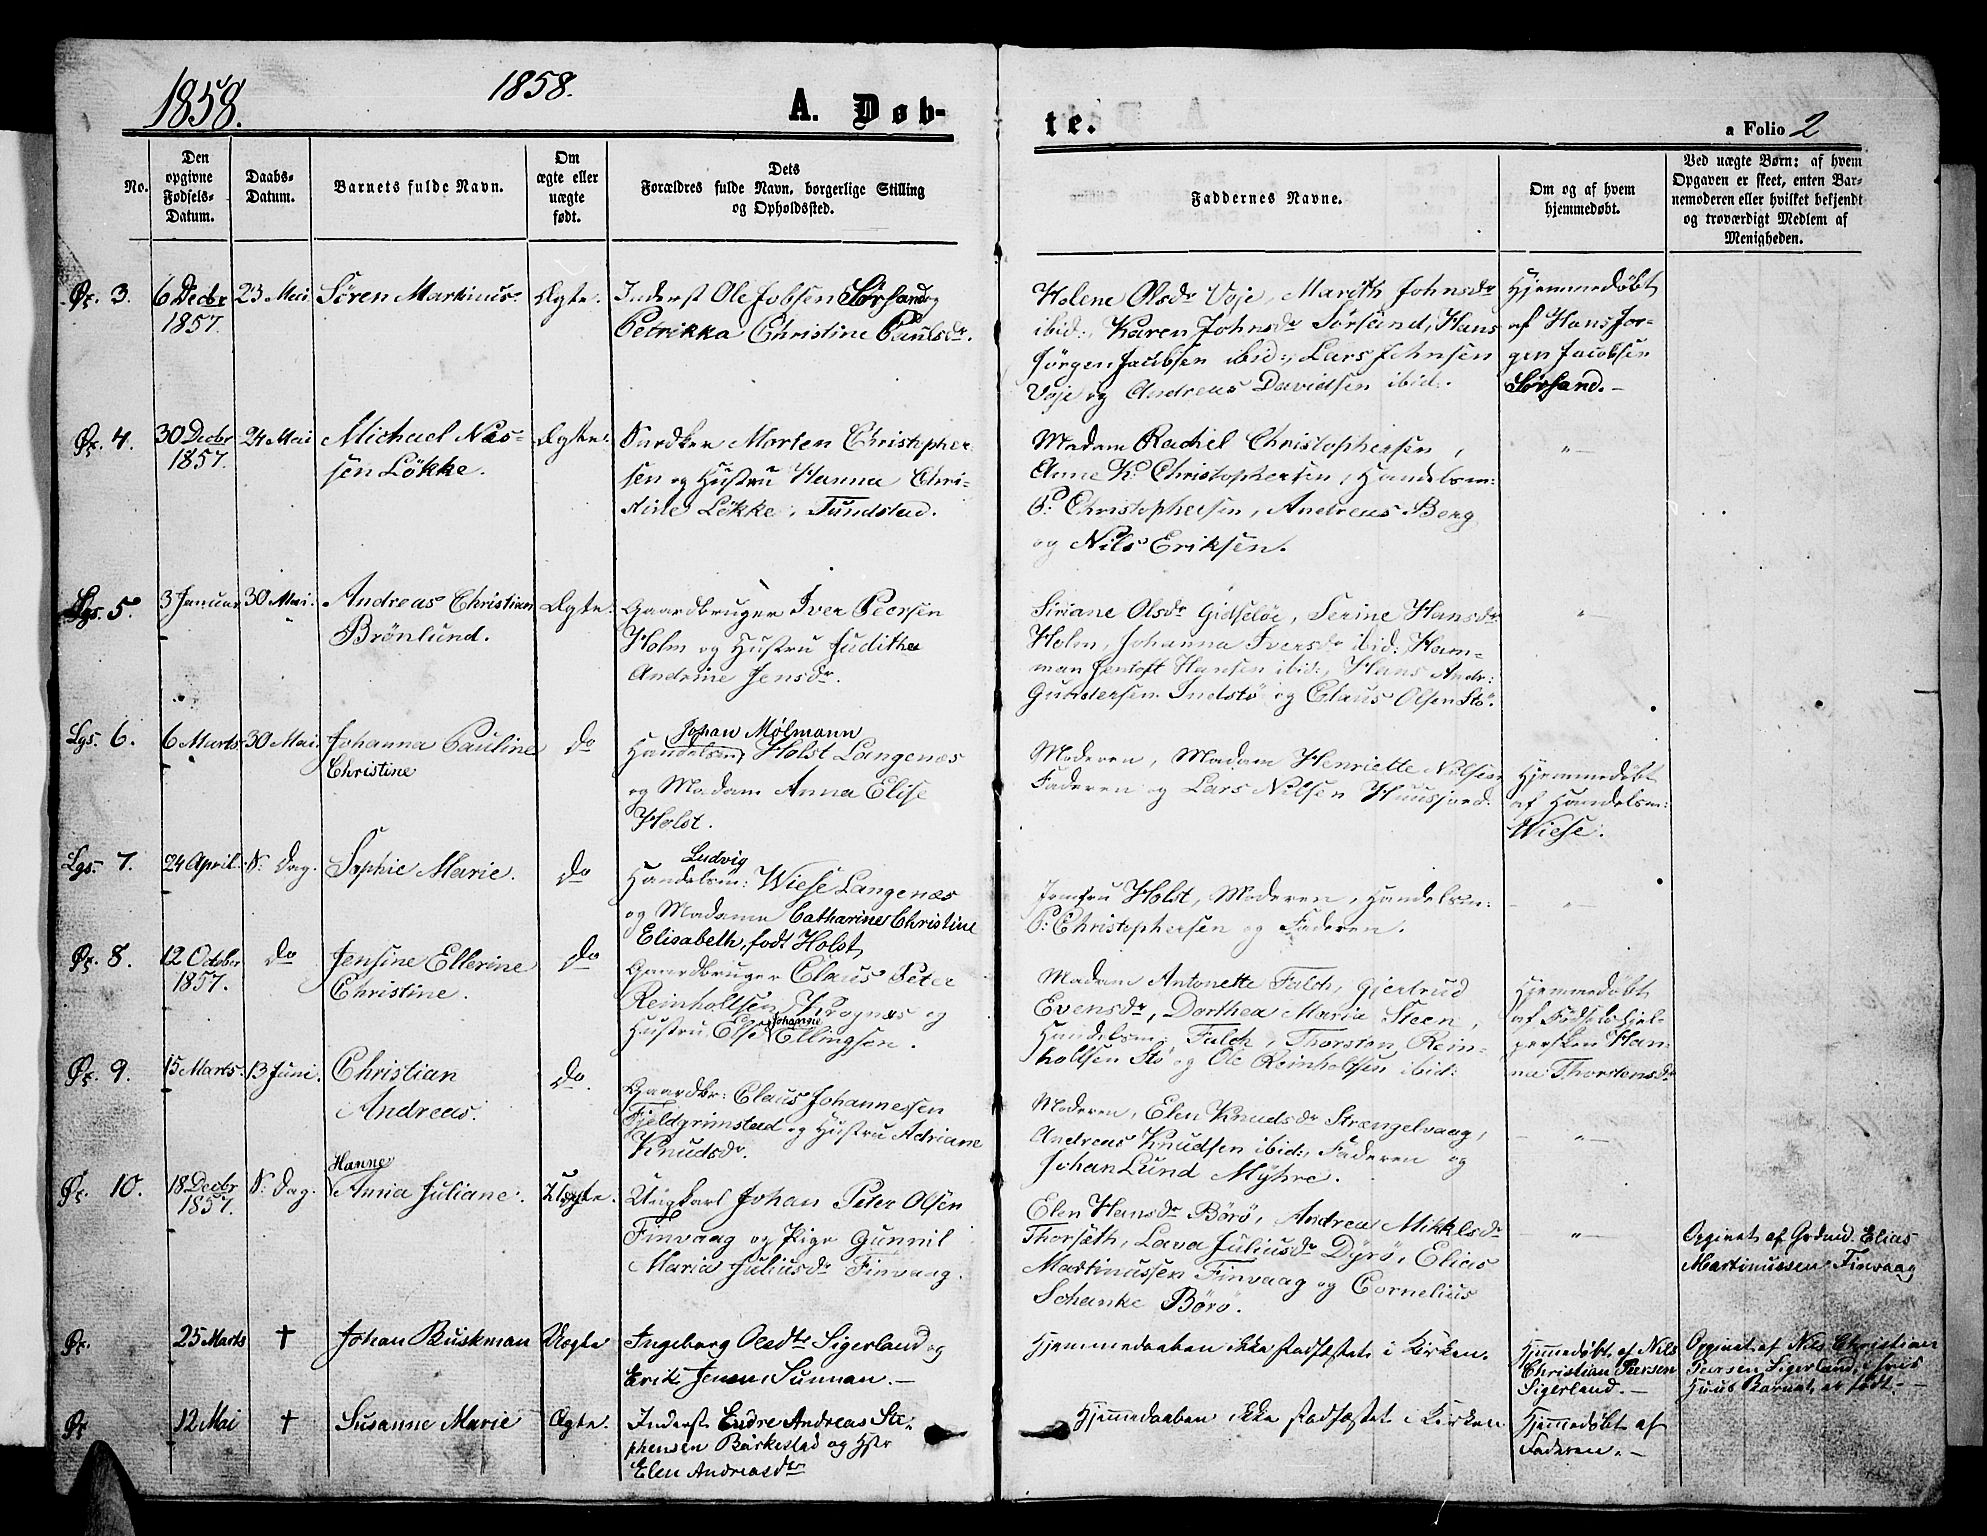 1858. 1858. A. Døb- te. a Folio 2
No.
Den opgivne Fødsels-Datum.
Daabs-Datum.
Barnets fulde Navn.
Om ægte eller uægte født.
Dets Forældres fulde Navn, borgerlige Stilling og Opholdssted.
Faddernes Navne.
Om og af hvem hjemmedøbt.
Ved uægte Børn: af hvem Opgaven er skeet, enten Barnemoderen eller hvilket bekjendt og troværdigt Medlem af Menigheden.
Øx. 3. 6 Decbr 1857. 23 Mai Sören Martinus. Ægte.
Inderst Ole Jobsen Sørsand og
Petrikka Christine Paulsdr.
Helene Olsdr Voje, Marith Johnsdr
ibid:, Karen Johnsdr Sørsand, Hans
Jørgen Jacobsen ibid:, Lars Johnsen
Voje og Andreas Davidsen ibid:.
Hjemmedøbt
af Hans Jør-
gen Jacobsen
Sørsand. –
Øx. 4. 30 Decbr 1857. 24 Mai Michael Nis-
sen Lökke. Ægte.
Morten Christopher-
sen og Hustru Hanna Chri-
stine Lökke, Tundstad.
Madam Rachel Christophersen,
Anne K. Christophersen, Handelsm:
P: Christophersen, Andreas Berg
og Nils Eriksen.
– " –
Lgs. 5. 3 Januar 30 Mai. Andreas Christian
Brönlund. Ægte.
Gaardbruger Iver Peersen
Holm og Hustru Juditha
Andrine Jensdr.
Siriane Olsdr Gidsløe, Serine Hansdr
Holm, Johanna Iversdr ibid:, Ham-
man Jentoft Hansen ibid:, Hans Andr:
Gundersen Indstö og Claus Olsen Stö.
– " –
Lgs. 6. 6 Marts 30 Mai. Johanna Pauline
Christine do
Johan Mølmann
Handelsm: Holst Langenæs
og Madam Anna Elise
Holst.
Moderen, Madam Henriette Nilsen
Faderen og Lars Nilsen Huusjord.
Hjemmedøbt
af Handelsm:
Wiese.
Lgs. 7. 24 April. S: Dag. Sophie Marie. do
Ludvig
Handelsm: Wiese Langenæs
og Madame Catharine Christine
Elisabeth, født Holst
Jomfru Holst, Moderen, Handelsm:
P: Christophersen og Faderen.
– " –
Øx. 8. 12 October 1857. do Jensine Ellerine
Christine. do
Gaardbruger Claus Peter
Reinholtsen Krognæs og
Johanne
Hustru Else Ellingsen.
Madam Antonette Falch, Gjertrud
Evensdr, Dorthea Maria Steen,
Handelsm: Falch, Thorsten Rein-
holtsen Stö og Ole Reinholtsen ibid:
Hjemmedøbt
af Fødselshjel-
persken Han-
na Thorstensdr
Øx. 9. 15 Marts. 13 Juni. Christian
Andreas. do.
Gaardbr: Claus Johannessen
Fjeldgrimstad og Hustru Adriane
Knudsdr.
Moderen, Elen Knudsdr Strængelvaag,
Andreas Knudsen ibid:, Faderen og
Johan Lund Myhre.
– " –
Øx. 10. 18 Decbr 1857. S: Dag. Hanne
Anna Juliane. Uægte.
Ungkarl Johan Peter Olsen
Finvaag og Pige Gunnil
Maria Juliusdr Finvaag.
Elen Hansdr Börö, Andrea Mikkelsdr
Thorsæth, Lava Juliusdr Dyrö, Elias
Martinussen Finvaag og Cornelius
Schanke Börö.
– " –
Opgivet af Grdmd. Elias
Martinussen Finvaag
Øx. 25 Marts † Johan Buskman Uægte
Ingeborg Olsdtr Sigerland og
Erik Jensen Sunnan. –
Hjemmedaaben ikke stadfæstet i Kirken.
Hjemmedøbt af Nils
Christian Peersen
Sigerland. –
Opgivet af Nils Christian
Peersen Sigerland, i hvis
Huus Barnet er født. –
Øx 12 Mai † Susanne Marie Ægte.
Inderst Endre Andreas Ste-
phensen Barkestad og Hstr
Elen Andreasdtr
Hjemmedaaben ikke stadfæstet i Kirken
Hjemmedøbt af
Faderen. –